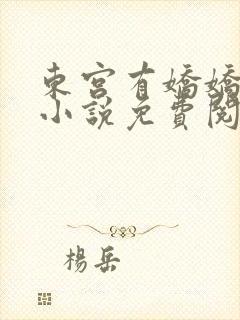 東宮有嬌嬌
小說免費閱
楊岳